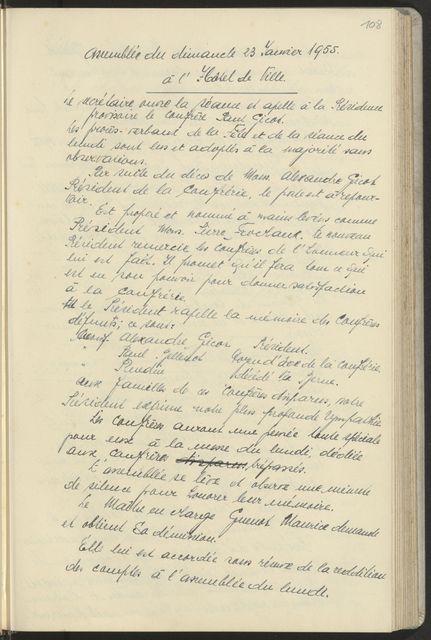 108
Assemblée du dimanche 23 Janvier 1955.
à l'Hôtel de Ville.
Le secrétaire ouvre la séance et apelle à la Présidence
provisoire le confrère Paul Gicot.
Les procès-verbaux de la Fête et de la séance du
lundi sont lus et adoptés à la majorité sans
observations.
Par suite du décès de Mons. Alexandre Gicot
Président de la Confrérie, le poste est à repour-
voir.
Est proposé et nommé à mains levées comme
Président Mons. Pierre Frochaux. Le nouveau
Président remercie les confrères de l'honneur qui
lui est fait. Il promet qu'il fera tout ce qui
est en son pouvoir pour donner satisfaction
à la confrérie.
le Président rapelle la mémoire des Confrères
défunts; ce sont:
Mons. Alexandre Gicot Président.
" Paul Gellenot doyen d'âge de la confrérie
"
aux familles de ces Confrères disparus, notre
Président exprime notre plus profonde sympathie
Les confrères auront une pensée toute spéciale
pour eux à la messe du lundi, dédiée
aux confrères disparus, trépassés.
L'assemblée se lève et observe une minute
de silence pour honorer leur mémoire.
Le Maître en charge Guenot Maurice demande
et obtient sa démission.
Elle lui est accordée sous réserve de la reddition
des comptes à l'assemblée du lundi.